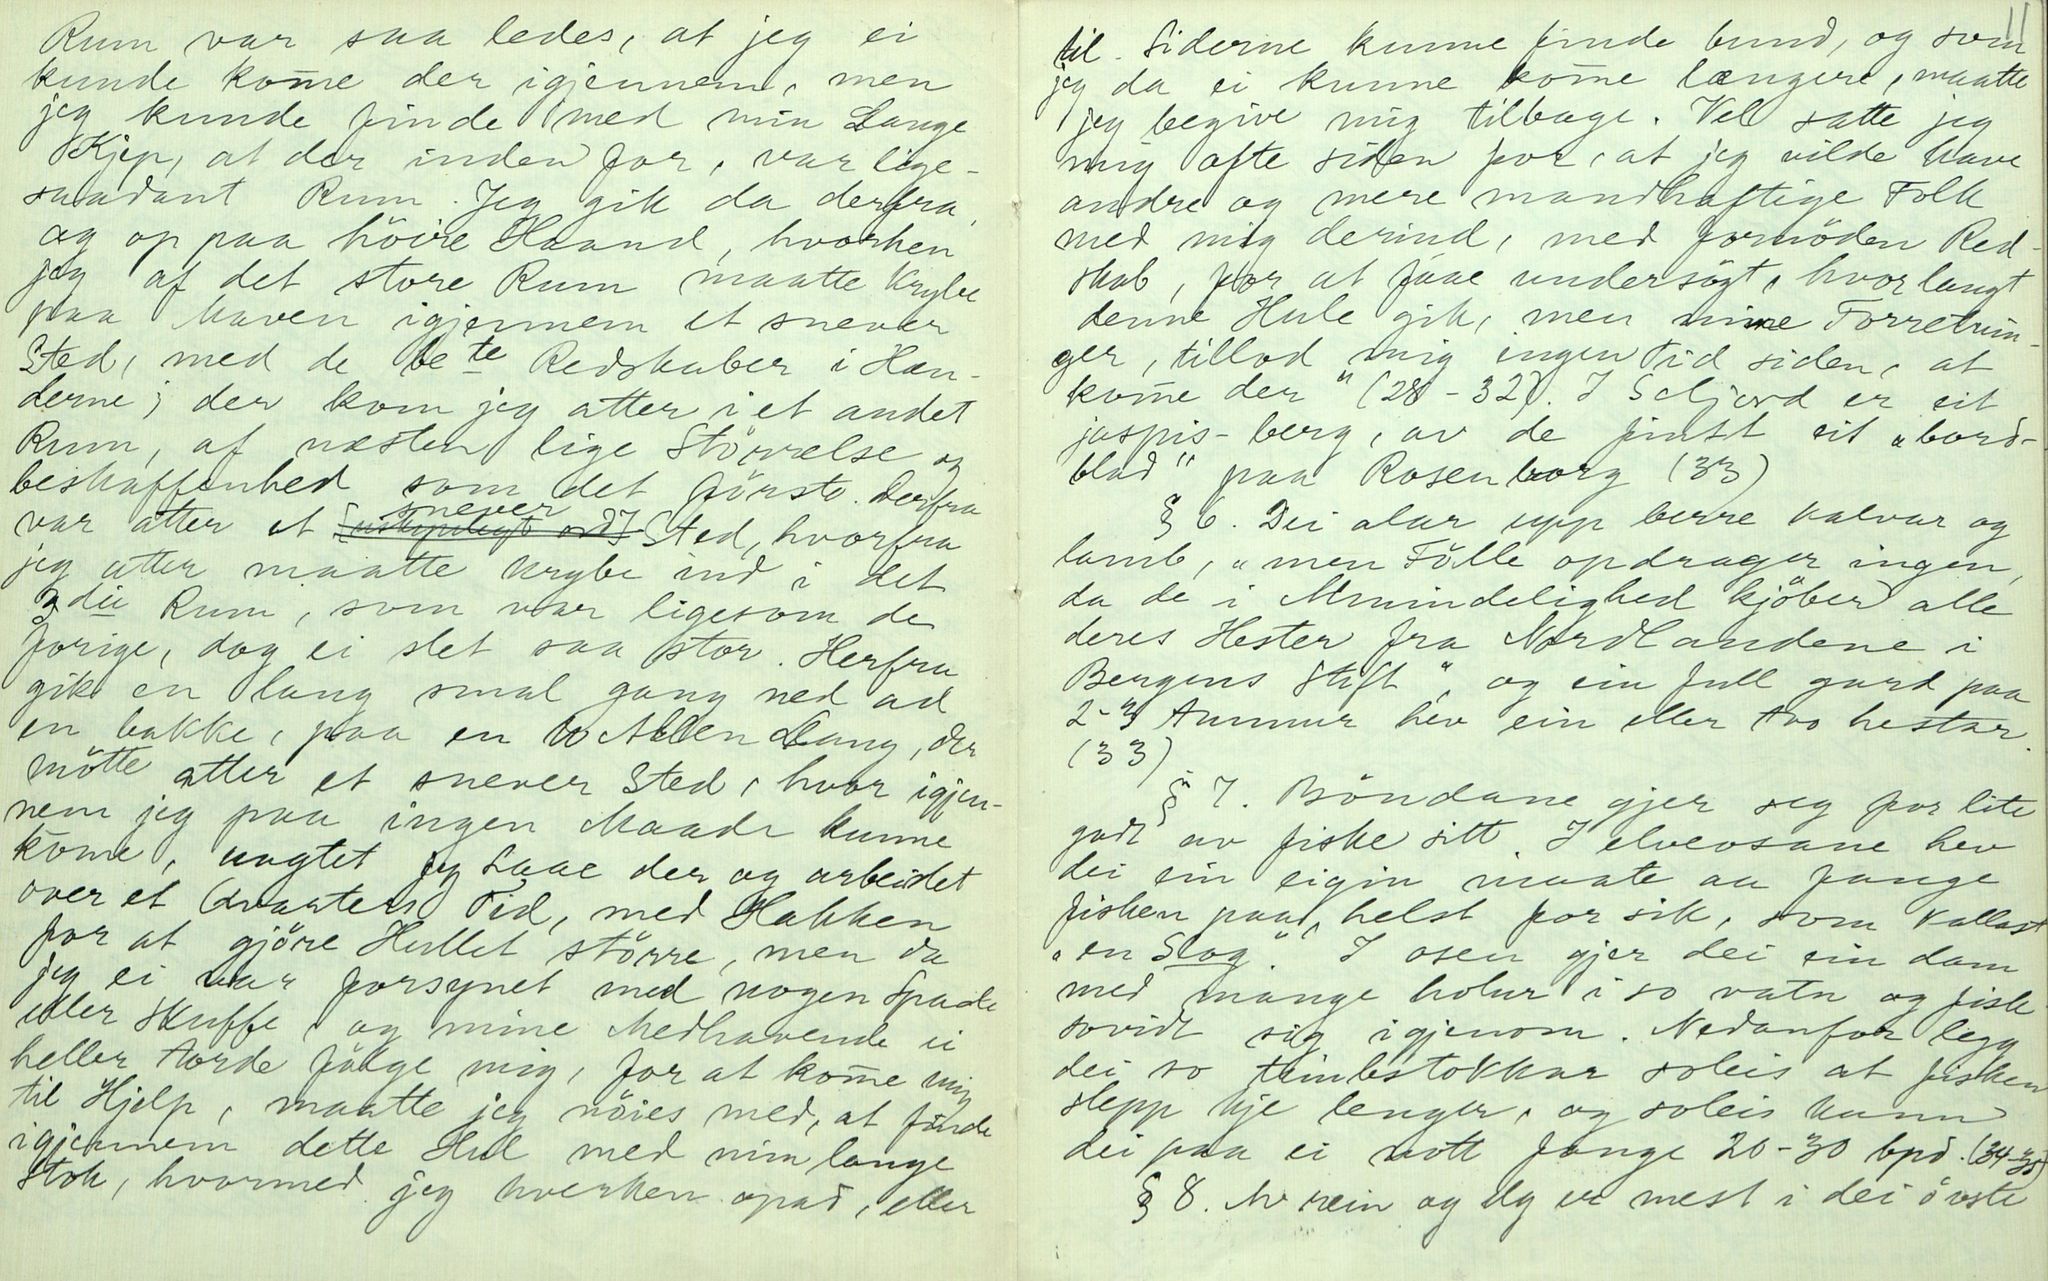 Rum var saa ledes, at jeg ei
kunde kom̄e der igjennem, men
jeg kunde finde med min Lange
Kjep, at der inden for, var lige-
saadant Rum. Jeg gik da derfra,
og op paa höire Haand, hvorhen
jeg af det store Rum maatte krybe
paa Maven igjennem et snever
Sted, med de be<u>te</u> Redskaber i Hæn-
derne; der kom jeg atter i et andet
Rum, af næsten lige Störrelse og
beskaffenhed som det förste. Derfra
var atter et snever Sted, hvorfra
jeg atter maatte krybe ind i det
3die Rum, som var ligesom de
forige, dog ei slet saa stor. Herfra
gik en lang smal gang ned ad
en bakke, paa en 10 Allen Lang, der
mötte atter et snever Sted, hvor igjen-
nem jeg paa ingen Maade kunne
kom̄e, uagtet jeg Laae der og arbeidet
over et Qvarters Tid, med Hakken
for at gjöre Hullet större, men da
jeg ei var forsynet med nogen Spade
eller Skuffe, og mine Medhavende ei
heller torde fölge mig, for at kom̄e mig
til Hjelp, maatte jeg nöies med, at finde
igjennem dette Hul med min lange
Stok, hvormed jeg hverken opad, eller
11
til Siderne kunne finde bund, og som
jeg da ei kunne kom̄e længere, maatte
jeg begive mig tilbage. Vel satte jeg
mig ofte siden for, at jeg vilde have
andre og mere mandhaftige Folk
med mig derind, med fornöden Red-
skab, for at faae undersögt, hvor langt
denne Hule gik, men mine Forretnin-
ger, tillod mig ingen Tid siden, at
kom̄e der" (28-32). I Seljord er eit
jaspis-berg, av de finst eit "bord-
blad" paa Rosenborg (33)
§ 6. Dei alar upp berre kalvar og
lamb, "men Fölle opdrager ingen,
da de i Almindelighed kjöber alle
deres Hester fra Nordlandene i
Bergens Stift", og ein full gard paa
2-3 tunnur hev ein eller two hestar.
(33)
§ 7. Böndane gjer seg for lite
godt av fiske sitt. I elveosane hev
dei ein eigin maate aa fange
fisken paa, helst for sik, som kallast
"en Slog". I osen gjer dei ein dam
med mange holur i so vatn og fisk
sovidt sig igjenom. Nedanfor legg
dei so timbstokkar soleis at fisken
slepp kje lenger, og soleis kann
dei paa ei nott fange 20-30 bpd. (34-35)
§ 8. Av rein og elg er mest i dei övste